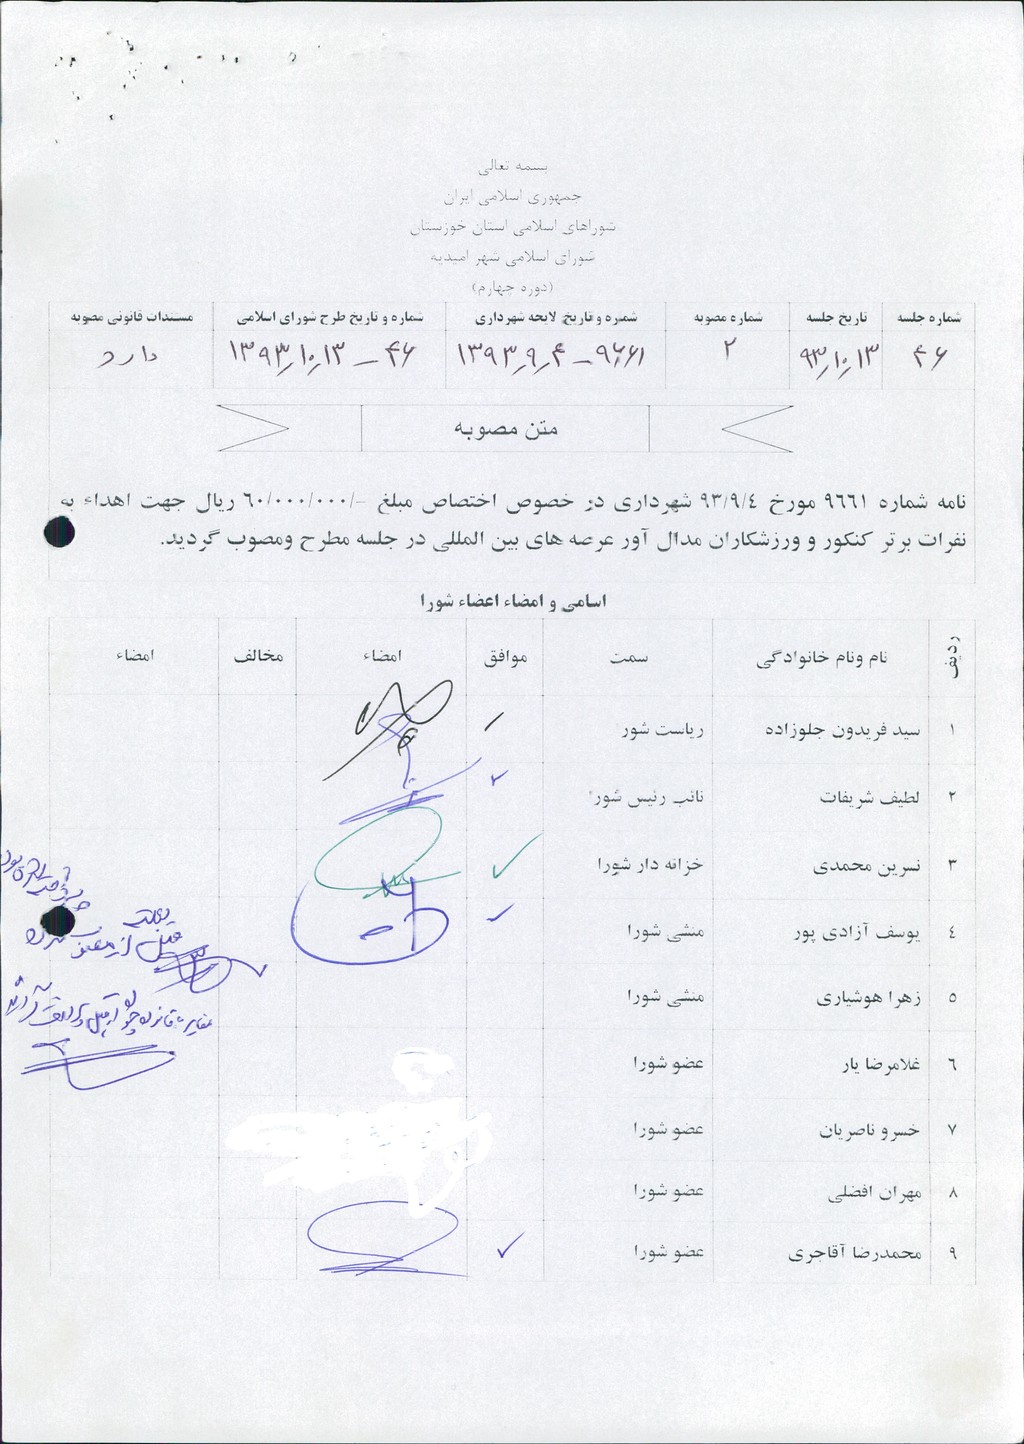 بسمه تعالی
جمهوری اسلامی ایران
شوراهای اسلامی استان خوزستان
شورای اسلامی شهر امیدیه
(دوره چهارم)
شماره جلسه تاریخ جلسه شماره مصوبه شماره و تاریخ لایحه شهرداری شماره و تاریخ طرح شورای اسلامی مستندات قانونی مصوبه
۴۶ ۹۳/۱۰/۱۳ ۲ ۹۶۶۱ - ۱۳۹۳/۹/۴ ۴۶ - ۱۳۹۳/۱۰/۱۳ دارد
متن مصوبه
نامه شماره ۹٦٦۱ مورخ ۹۳/۹/٤ شهرداری در خصوص اختصاص مبلغ -/۶۰/۰۰۰/۰۰۰ ریال جهت اهداء به
نفرات برتر کنکور و ورزشکاران مدال آور عرصه های بین المللی در جلسه مطرح ومصوب گردید.
اسامی و امضاء اعضاء شورا
ردیف نام ونام خانوادگی سمت موافق امضاء مخالف امضاء
۱ سید فریدون جلوزاده ریاست شور
۲ لطیف شریفات نائب رئیس شور
۳ نسرین محمدی خزانه دار شورا
٤ یوسف آزادی پور منشی شورا
٥ زهرا هوشیاری منشی شورا
٦ غلامرضا یار عضو شورا
۷ خسرو ناصریان عضو شورا
۸ مهران افضلی عضو شورا
۹ محمدرضا آقاجری عضو شورا